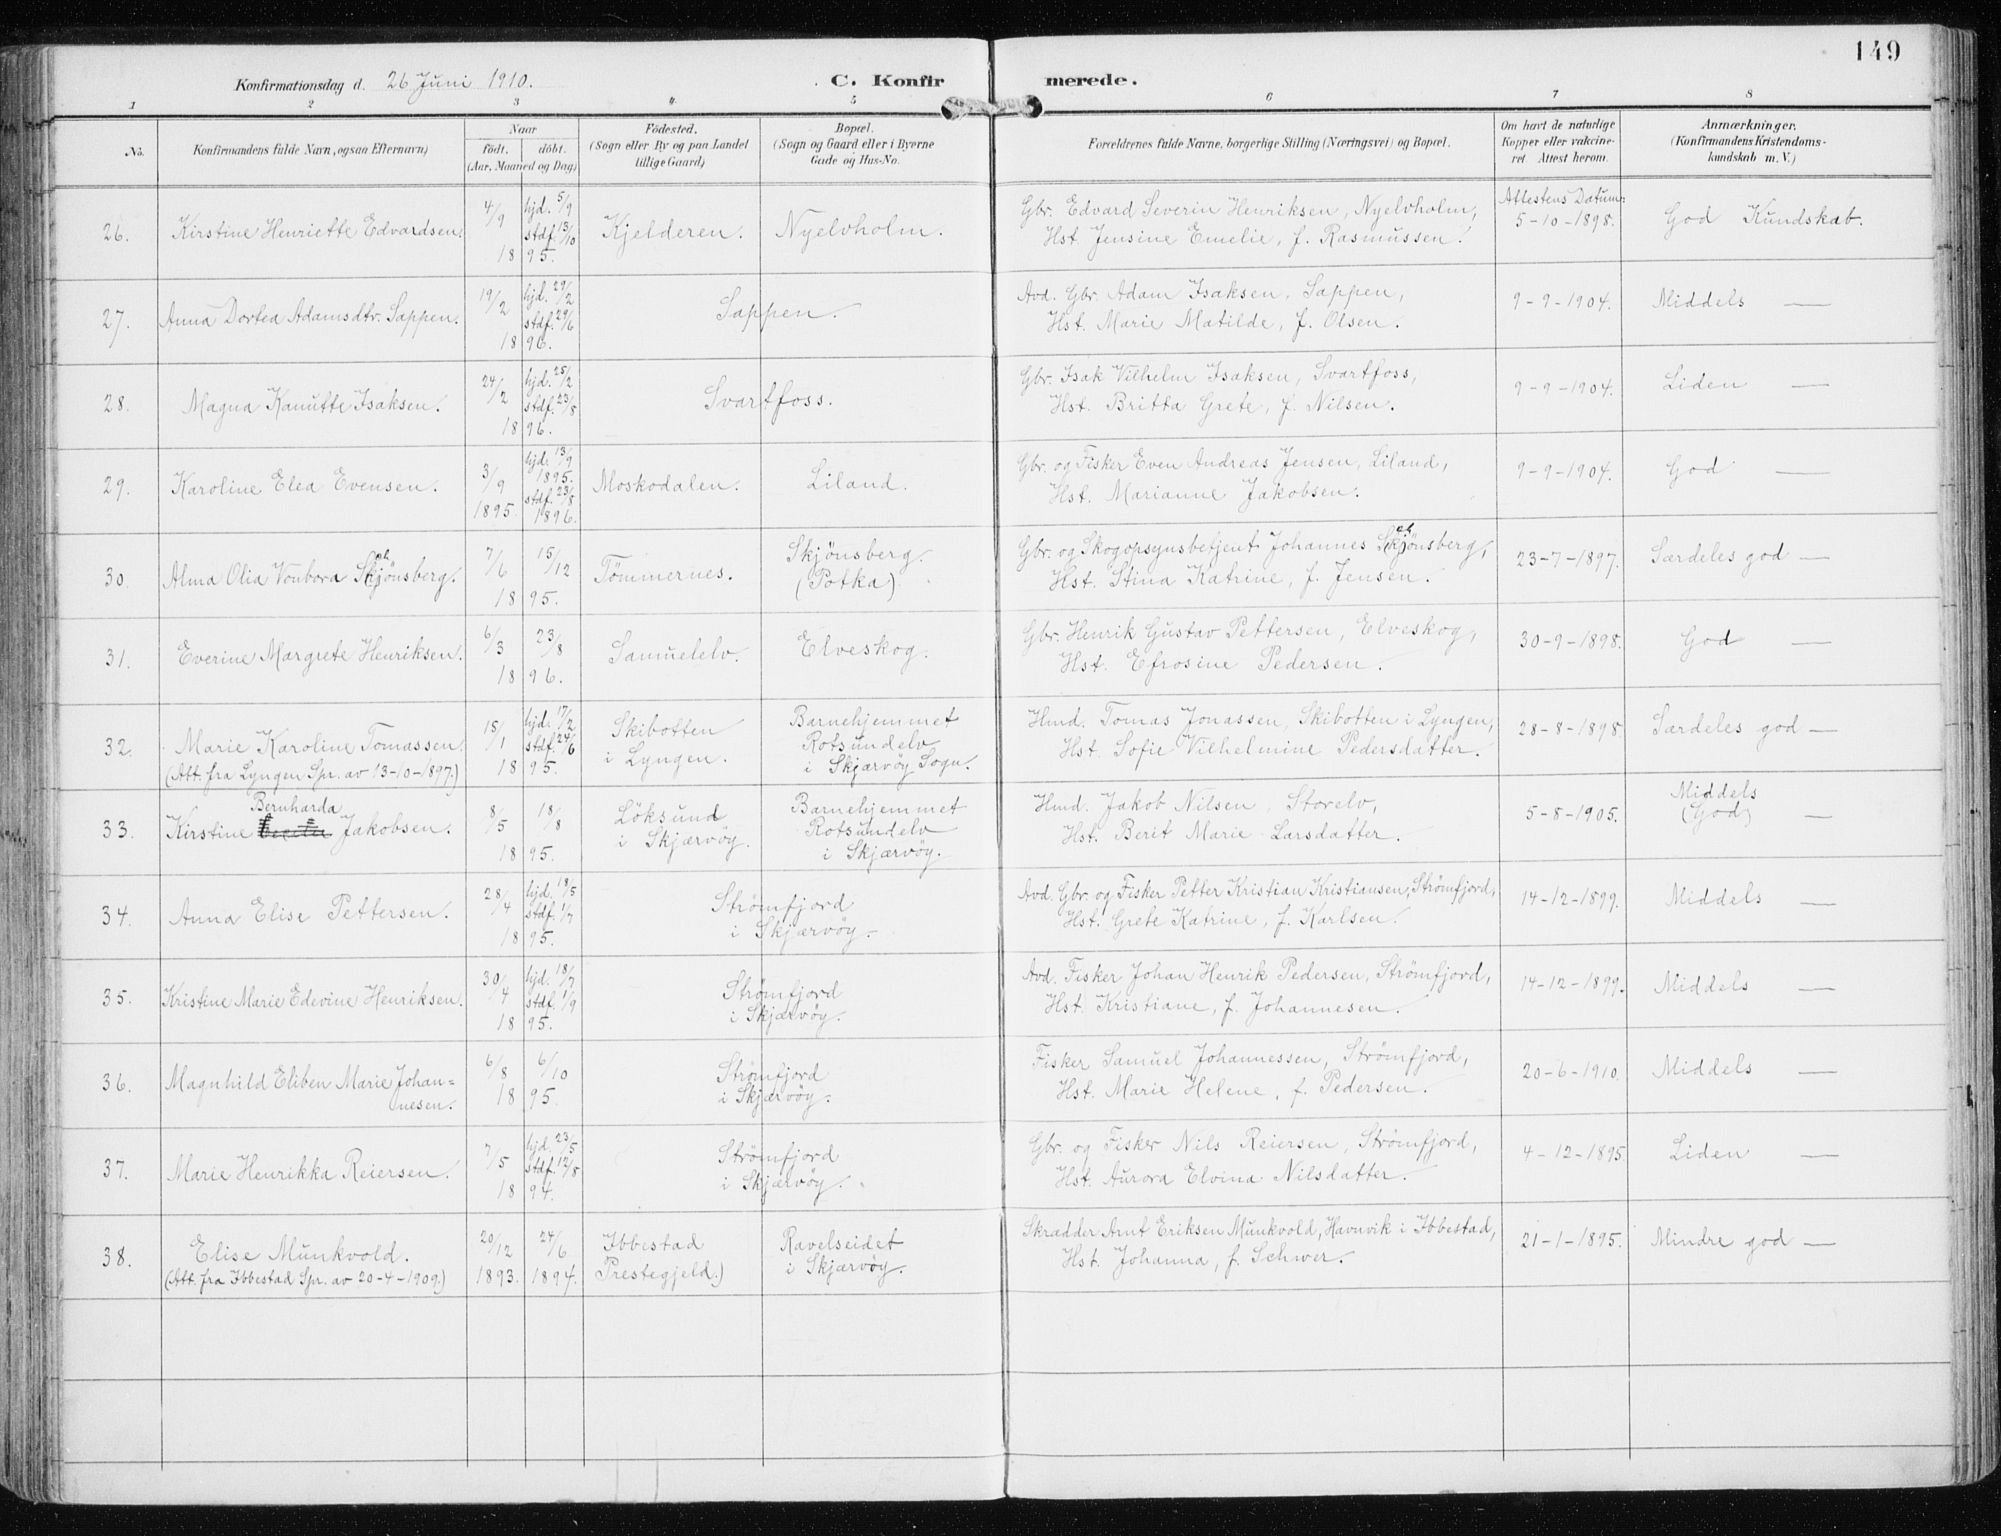 149
Konfirmationsdag d. 26 Juni 1910.
C. Konfirmerede.
1 2 3 4 5 6 7 8
No.
Konfirmandens fulde Navn, ogsaa Efternavn)
Naar
födt. döbt.
(Aar, Maaned og Dag)
Födested.
(Sogn eller By og paa Landet
tillige Gaard)
Bopæl.
(Sogn og Gaard eller i Byerne
Gade og Hus-No.
Forældrenes fulde Navne, borgerlige Stilling (Næringsvei) og Bopæl.
Om havt de naturlige
Kopper eller vakcine-
ret. Attest herom.
Anmærkninger.
(Konfirmandens Kristendoms-
kundskab m. V.)
26. Kirstine Henriette Edvardsen. 4/9 1895. hjd. 5/9 stdf. 13/10 Kjelderen. Nyelvholm.
Gbr. Edvard Severin Henriksen, Nyelvholm,
Hst. Jensine Emelie, f. Rasmussen.
Attestens Datum:
5-10-1898. God Kundskab.
27. Anna Dortea Adamsdtr. Sappen. 19/2 1896. hjd. 29/2 stdf. 29/6 Sappen.
Avd. Gbr. Adam Isaksen, Sappen,
Hst. Marie Matilde, f. Olsen.
9-9-1904. Middels —
28. Magna Kanutte Isaksen. 24/2 1896. hjd. 25/2 stdf. 23/8 Svartfoss.
Gbr. Isak Vilhelm Isaksen, Svartfoss,
Hst. Britta Grete, f. Nilsen.
9-9-1904. Liden —
29. Karoline Elea Evensen. 3/9 1895. hjd. 13/9 1895. stdf. 23/8 1896. Moskodalen. Liland.
Gbr. og Fisker Even Andreas Jensen, Liland,
Hst. Marianne Jakobsen.
9-9-1904. God —
30. Alma Olia Vonbora Skjönsberg. 7/6 15/12 1895. Tömmernes. Skjönsberg.
(Potka)
Gbr. og Skogopsynsbetjent Johannes Skjönsberg,
Hst. Stina Katrine, f. Jensen.
23-7-1897. Særdeles god —
31. Everine Margrete Henriksen. 6/3 23/8 1896. Samuelelv. Elveskog.
Gbr. Henrik Gustav Pettersen, Elveskog,
Hst. Efrosine Pedersen.
30-9-1898. God —
32. Marie Karoline Tomassen.
(Att. fra Lyngen Spr. av 13-10-1897.)
15/1 1895. hjd. 17/2 stdf. 24/6
Skibotten
i Lyngen.
Barnehjemmet
Rotsundelv
i Skjærvöy Sogn.
Hmd. Tomas Jonassen, Skibotten i Lyngen,
Hst. Sofie Vilhelmine Pedersdatter.
28-8-1898. Særdeles god —
33. Kirstine Bernharda Jakobsen. 8/5 18/8 1895.
Löksund
i Skjærvöy.
Barnehjemmet
Rotsundelv
i Skjærvöy.
Hmd. Jakob Nilsen, Storelv,
Hst. Berit Marie Larsdatter.
5-8-1905. Middels
(God) —
34. Anna Elise Pettersen. 28/4 1895. hjd. 18/5 stdf. 1/7
Strömfjord
i Skjærvöy.
Avd. Gbr. og Fisker Petter Kristian Kristiansen, Strömfjord,
Hst. Grete Katrine, f. Karlsen.
14-12-1899. Middels —
35. Kristine Marie Edevine Henriksen. 30/4 1895. hjd. 18/7 stdf. 1/9
Strömfjord
i Skjærvöy.
Avd. Fisker Johan Henrik Pedersen, Strömfjord,
Hst. Kristiane, f. Johannesen.
14-12-1899. Middels —
36. Magnhild Eliben Marie Johan=
nesen.
6/8 6/10 1895.
Strömfjord
i Skjærvöy.
Fisker Samuel Johannessen, Strömfjord,
Hst. Marie Helene, f. Pedersen.
20-6-1910. Middels —
37. Marie Henrikka Reiersen. 7/5 1894. hjd. 23/5 stdf. 12/8
Strömfjord
i Skjærvöy.
Gbr. og Fisker Nils Reiersen, Strömfjord,
Hst. Aurora Elvina Nilsdatter.
4-12-1895. Liden —
38. Elise Munkvold.
(Att. fra Ibbestad Spr. av 20-4-1909.)
20/12 1893. 24/6 1894.
Ibbestad
Prestegjeld.)
Ravelseidet
i Skjærvöy.
Skrædder Arnt Eriksen Munkvold, Havnvik i Ibbestad,
Hst. Johanna, f. Schwer.
21-1-1895. Mindre god —